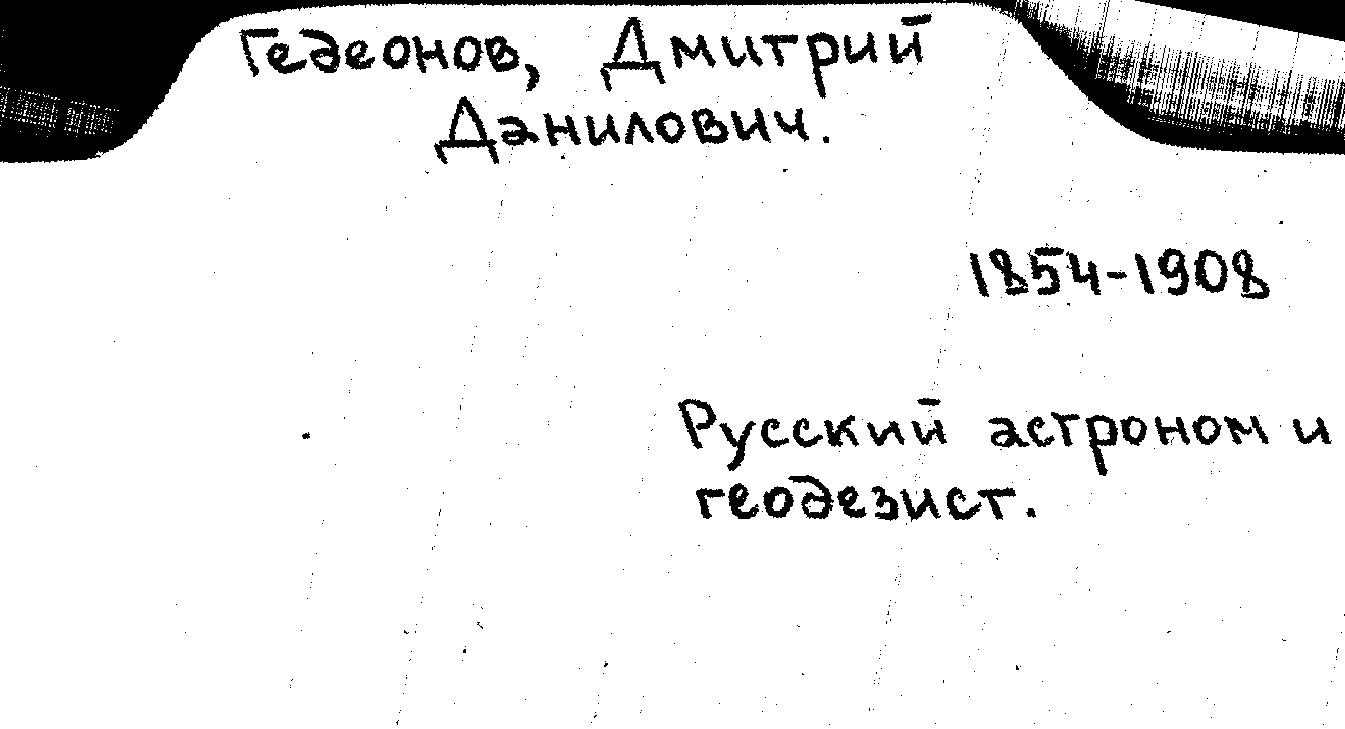 Гедеонов, Дмитрий
Данилович.
1854-1908
Русский астроном и
геодезист.